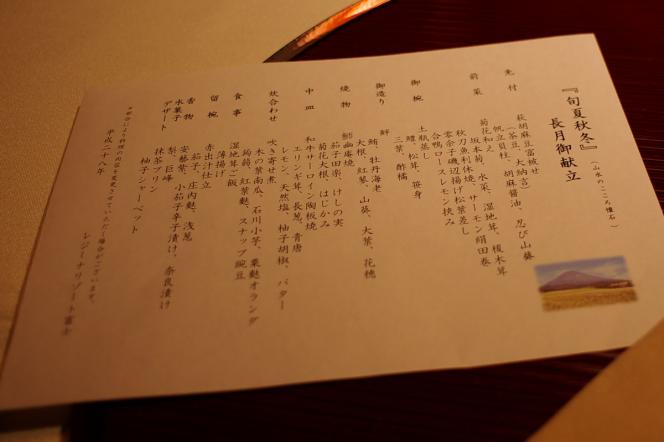 『旬夏秋冬』
(山水のこころ懐石)
長月御献立
先付 萩胡麻豆富被せ
(茶豆、大納言)
帆立貝柱、胡麻醤油、忍び山葵
前菜 菊花和え
坂本菊、水菜、湿地茸、榎木茸
秋刀魚利休焼、サーモン絹田巻
零余子磯辺揚げ松葉差し
合鴨ロースレモン挟み
御椀 土瓶蒸し
鱧、松茸、笹身
三葉、酢橘
御造り 鮃
鮪、牡丹海老
大根、紅蓼、山葵、大葉、花穂
焼物 鰤幽庵焼
茄子田楽、けしの実
菊花大根、はじかみ
中皿 和牛サーロイン陶板焼
エリンギ茸、長葱、青唐
レモン、天然塩、柚子胡椒、バター
炊合わせ 吹き寄せ煮
木の葉南瓜、石川小芋、粟麩オランダ
蒟蒻、紅葉麩、スナップ豌豆
食事 湿地茸ご飯
薄揚げ
留椀 赤出汁仕立
香物 茄子、庄内麩、浅葱
安藝紫、小茄子辛子漬け、奈良漬け
水菓子 梨、巨峰
デザート 抹茶プリン
柚子シャーベット
※都合により料理の内容を変更させていただく場合がございます。
平成二十八年
レジーナリゾート富士